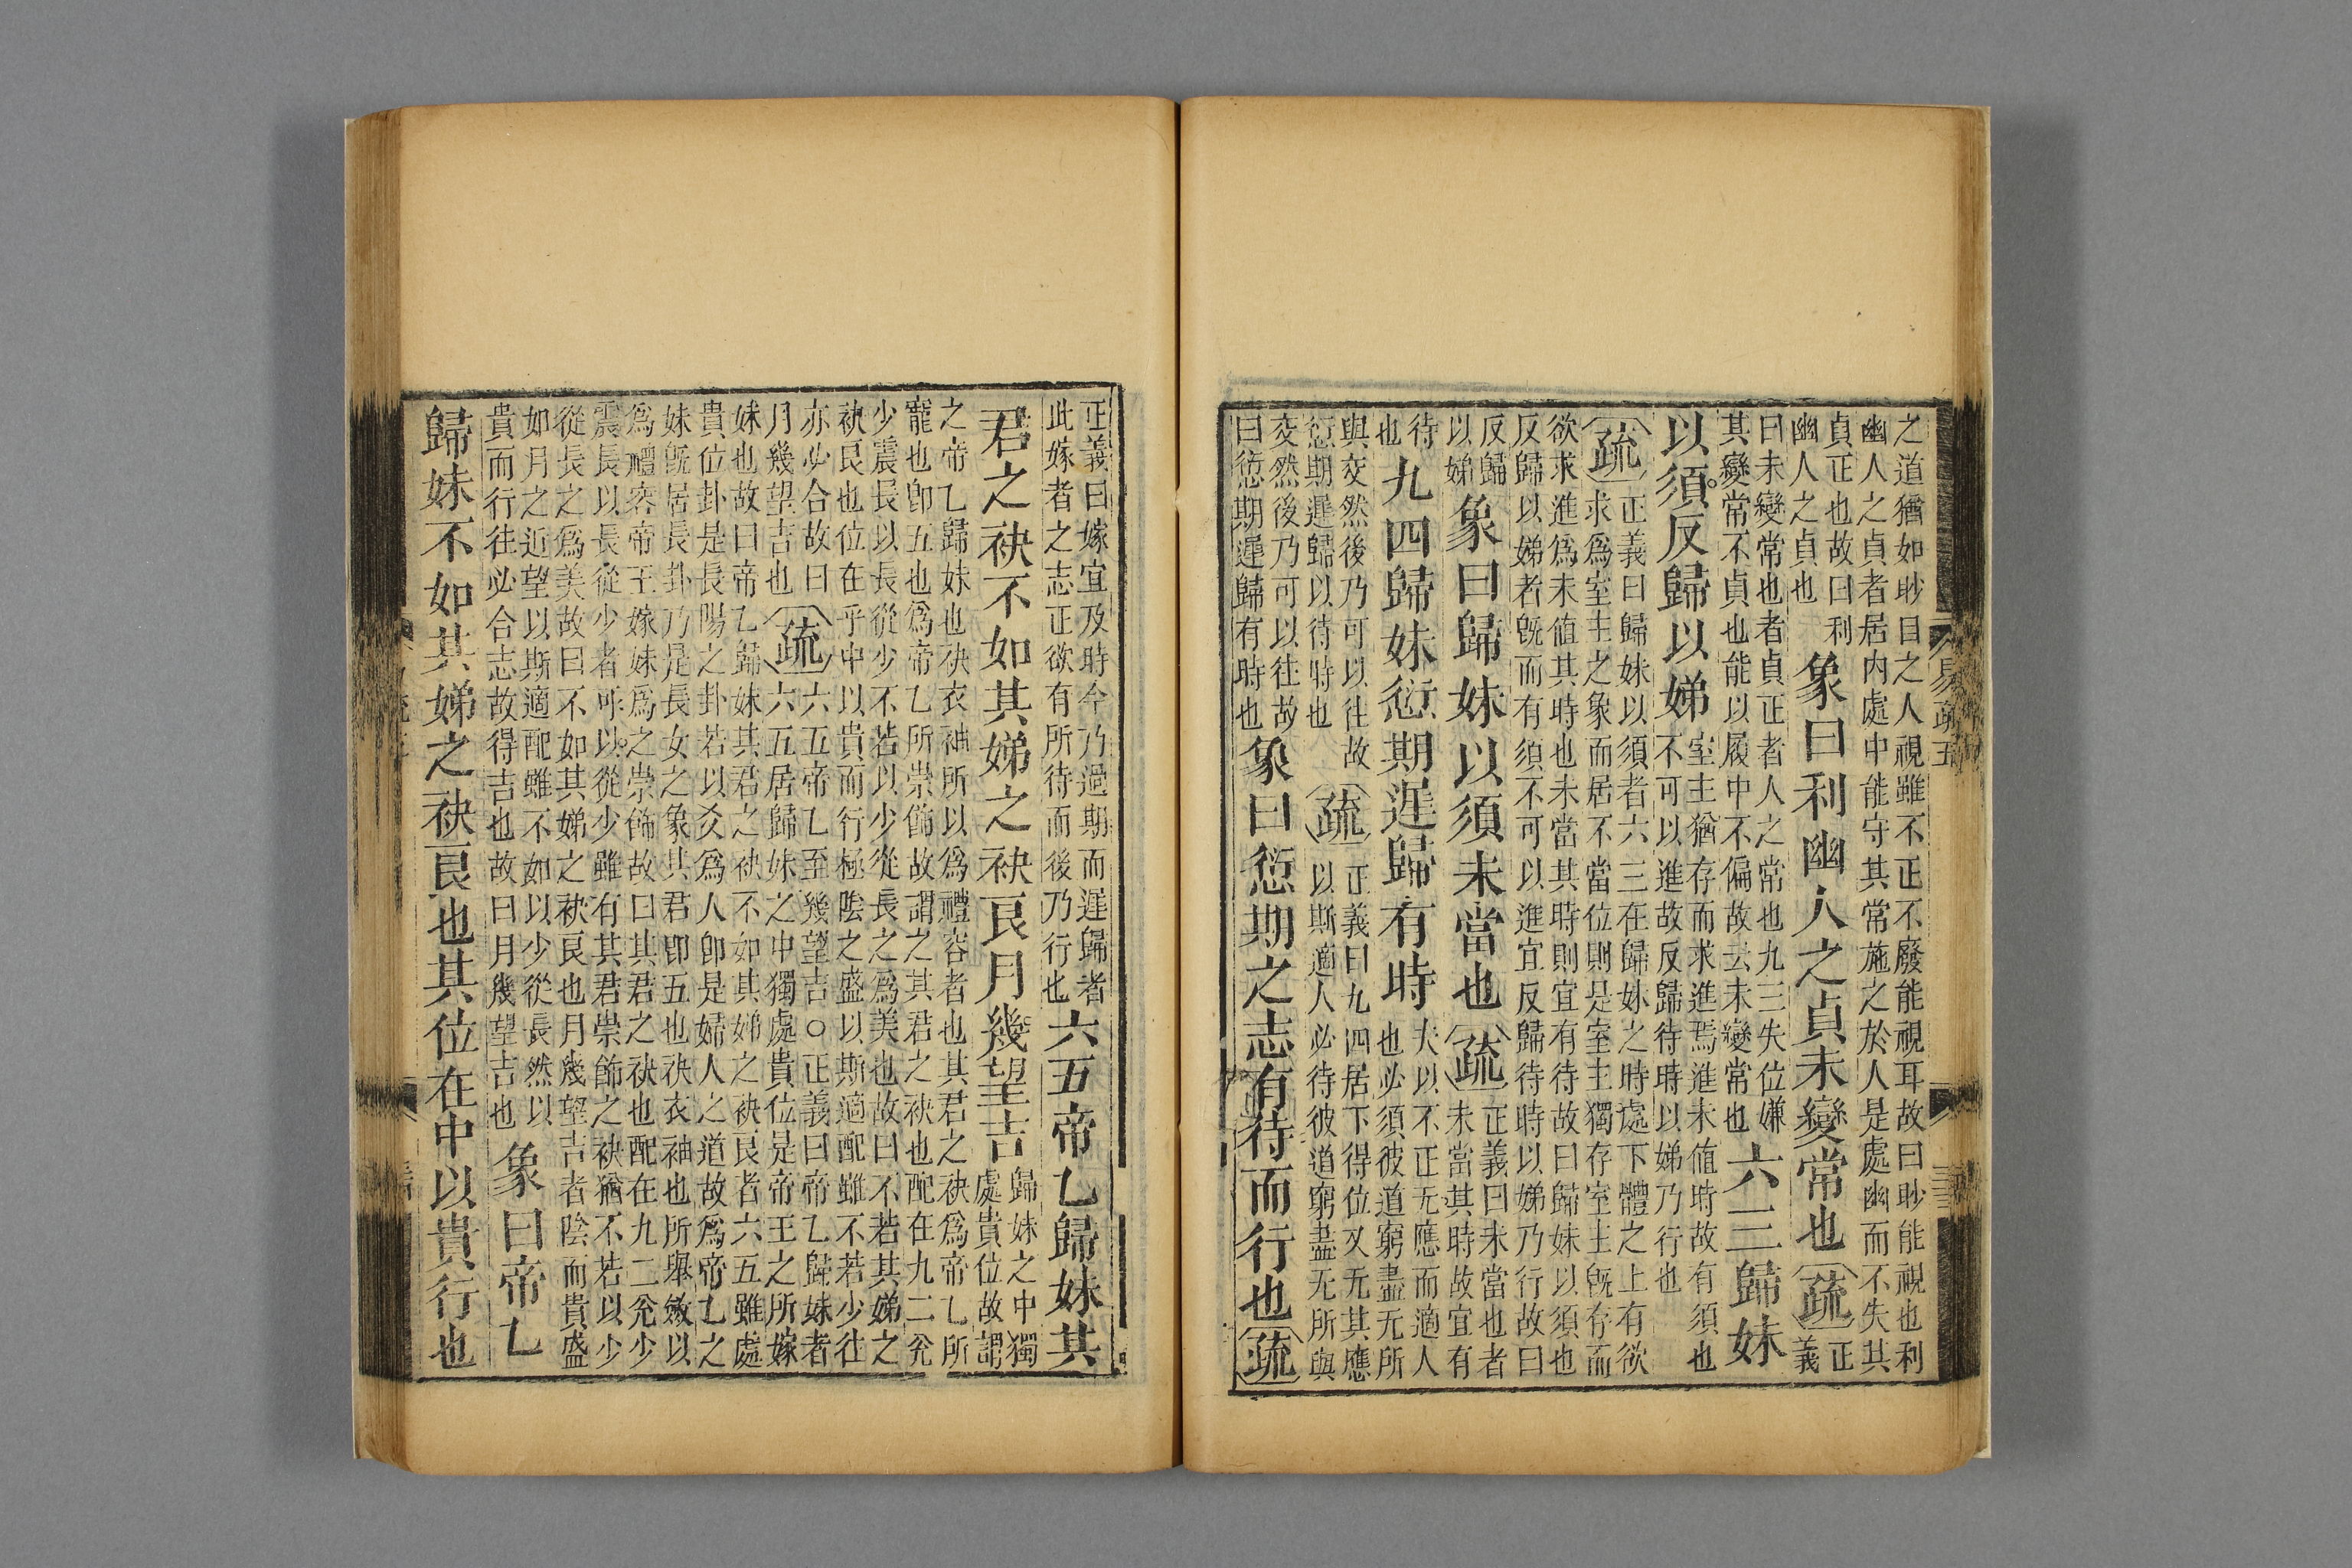 易疏五
之道猶如眇目之人視雖不正不廢能視耳故曰眇能視也利
幽人之貞者居内處中能守其常施之於人是處幽而不失其
貞正也故曰利
幽人之貞也
象曰利幽人之貞未變常也
疏
正
義
曰未變常也者貞正者人之常也九三失位嫌
其變常不貞也能以履中不偏故云未變常也
六三歸妹
以須反歸以娣
室主猶存而求進焉進未值時故有須也
不可以進故反歸待時以娣乃行也
疏
正義曰歸妹以須者六三在歸妹之時處下體之上有欲
求爲室主之象而居不當位則是室主獨存室主既存而
欲求進爲未值其時也未當其時則宜有待故曰歸妹以須也
反歸以娣者既而有須不可以進宜反歸待時以娣乃行故曰
反歸
以娣
象曰歸妹以須未當也
疏
正義曰未當也者
未當其時故宜有
待
也
九四歸妹愆期遲歸有時
夫以不正无應而適人
也必須彼道窮盡无所
與交然後乃可以往故
愆期遲歸以待時也
疏
正義曰九四居下得位又无其應
以斯適人必待彼道窮盡无所與
交然後乃可以往故
曰愆期遲歸有時也
象曰愆期之志有待而行也
疏
正義曰嫁宜及時今乃過期而遲歸者
此嫁者之志正欲有所待而後乃行也
六五帝乙歸妹其
君之袂不如其娣之袂良月幾望吉
歸妹之中獨
處貴位故謂
之帝乙歸妹也袂衣袖所以爲禮容者也其君之袂爲帝乙所
寵也卽五也爲帝乙所崇飾故謂之其君之袂也配在九二兊
少震長以長從少不若以少從長之爲美也故曰不若其娣之
袂良也位在乎中以貴而行極陰之盛以斯適配雖不若少往
亦必合故曰
月幾望吉也
疏
六五帝乙至幾望吉○正義曰帝乙歸妹者
六五居歸妹之中獨處貴位是帝王之所嫁
妹也故曰帝乙歸妹其君之袂不如其娣之袂良者六五雖處
貴位卦是長陽之卦若以爻爲人卽是婦人之道故爲帝乙之
妹既居長卦乃是長女之象其君卽五也袂衣袖也所舉斂以
爲禮容帝王嫁妹爲之崇飾故曰其君之袂也配在九二兊少
震長以長從少者可以從少雖有其君崇飾之袂猶不若以少
從長之爲美故曰不如其娣之袂良也月幾望吉者陰而貴盛
如月之近望以斯適配雖不如以少從長然以
貴而行往必合志故得吉也故曰月幾望吉也
象曰帝乙
歸妹不如其娣之袂良也其位在中以貴行也